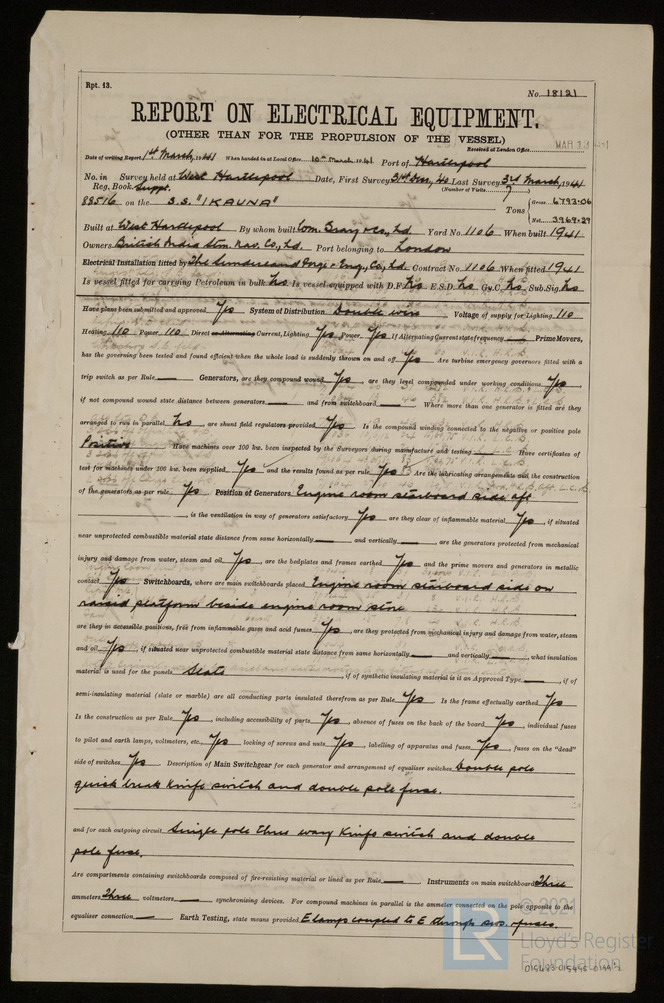 Rpt. 13.
No. 18121
REPORT ON ELECTRICAL EQUIPMENT.
(OTHER THAN FOR THE PROPULSION OF THE VESSEL)
Received at London Office
Date of writing Report 1st March, 1941 When handed in at Local Office 10th March 1941 Port of Hartlepool
No. in Survey held at West Hartlepool Date, First Survey 3rd Dec, 40 Last Survey 3rd March, 1941
Reg. Book. Suppt. (Number of Visits 7)
88516 on the S.S. "IKAUNA" Tons { Gross 6793.06
Net 3969.29
Built at West Hartlepool By whom built Wm. Gray & Co, Ld Yard No. 1106 When built 1941
Owners British India Stm. Nav. Co, Ld Port belonging to London
Electrical Installation fitted by The Sunderland Forge & Eng. Co, Ld Contract No. 1106 When fitted 1941
Is vessel fitted for carrying Petroleum in bulk No Is vessel equipped with D.F. No E.S.D. No Gy.C. No Sub.Sig. No
Have plans been submitted and approved Yes System of Distribution Double wire Voltage of supply for Lighting 110
Heating 110 Power 110 Direct or Alternating Current, Lighting Yes Power Yes If Alternating Current state frequency — Prime Movers,
has the governing been tested and found efficient when the whole load is suddenly thrown on and off Yes Are turbine emergency governors fitted with a
trip switch as per Rule — Generators, are they compound wound Yes, are they level compounded under working conditions Yes,
if not compound wound state distance between generators — and from switchboard — Where more than one generator is fitted are they
arranged to run in parallel No, are shunt field regulators provided Yes Is the compound winding connected to the negative or positive pole
Positive Have machines over 100 kw. been inspected by the Surveyors during manufacture and testing — Have certificates of
test for machines under 100 kw. been supplied Yes and the results found as per rule Yes Are the lubricating arrangements and the construction
of the generators as per rule Yes Position of Generators Engine room starboard side aft
, is the ventilation in way of generators satisfactory Yes are they clear of inflammable material Yes, if situated
near unprotected combustible material state distance from same horizontally — and vertically —, are the generators protected from mechanical
injury and damage from water, steam and oil Yes, are the bedplates and frames earthed Yes and the prime movers and generators in metallic
contact Yes Switchboards, where are main switchboards placed Engine room starboard side on
raised platform beside engine room store
are they in accessible positions, free from inflammable gases and acid fumes Yes, are they protected from mechanical injury and damage from water, steam
and oil Yes, if situated near unprotected combustible material state distance from same horizontally — and vertically —, what insulation
material is used for the panels Slate, if of synthetic insulating material is it an Approved Type —, if of
semi-insulating material (slate or marble) are all conducting parts insulated therefrom as per Rule Yes Is the frame effectually earthed Yes
Is the construction as per Rule Yes, including accessibility of parts Yes, absence of fuses on the back of the board Yes, individual fuses
to pilot and earth lamps, voltmeters, etc. Yes locking of screws and nuts Yes, labelling of apparatus and fuses Yes, fuses on the "dead"
side of switches Yes Description of Main Switchgear for each generator and arrangement of equaliser switches Double pole
quick break knife switch and double pole fuse.
and for each outgoing circuit Single pole three way knife switch and double
pole fuse.
Are compartments containing switchboards composed of fire-resisting material or lined as per Rule — Instruments on main switchboard Three
ammeters Three voltmeters — synchronising devices. For compound machines in parallel is the ammeter connected on the pole opposite to the
equaliser connection — Earth Testing, state means provided E lamps coupled to E through sws. & fuses.
© 2021
LR
Lloyd's Register
Foundation
015483-015495-0144